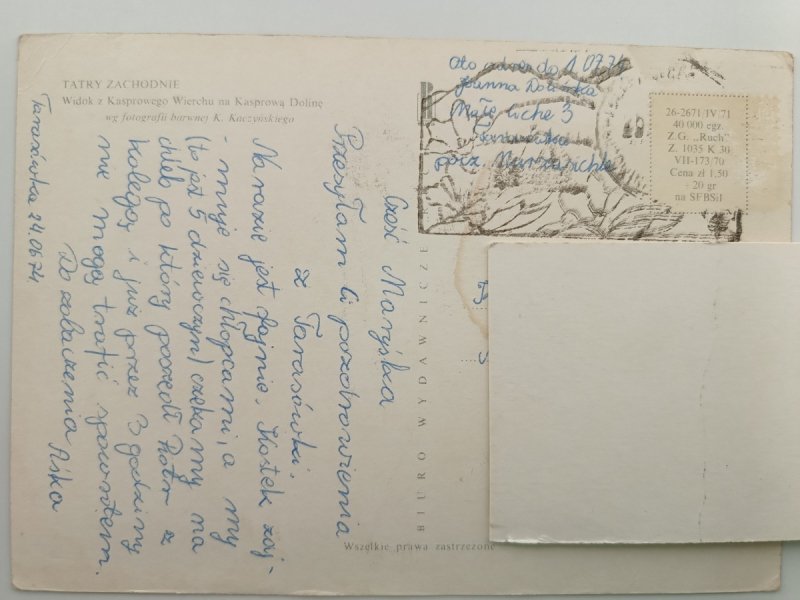 TATRY ZACHODNIE
Widok z Kasprowego Wierchu na Kasprową Dolinę
wg fotografii barwnej K. Kaczyńskiego
Cześć Maryśka
Przesyłam Ci pozdrowienia
z Tarasówki,
Na razie jest fajnie. Kostek zaj-
- muje się chłopcami, a my
(to jest 5 dziewczyn) czekamy na
chleb po który poszedł Piotr z
kolegą i już przez 3 godziny
nie mogą trafić spowrotem.
Do zobaczenia Aśka
Tarasówka 24.06.74
BIURO WYDAWNICZE
Wszelkie prawa zastrzeżone
Oto adres do 1.07.74
Joanna
Małe Ciche 3
Tarasówka
pocz. Murzasichle
26-2671/IV/71
40 000 egz.
Z.G. „Ruch"
Z. 1035 K 30
VII-173/70
Cena zł 1,50
+ 20 gr
na SFBSiI